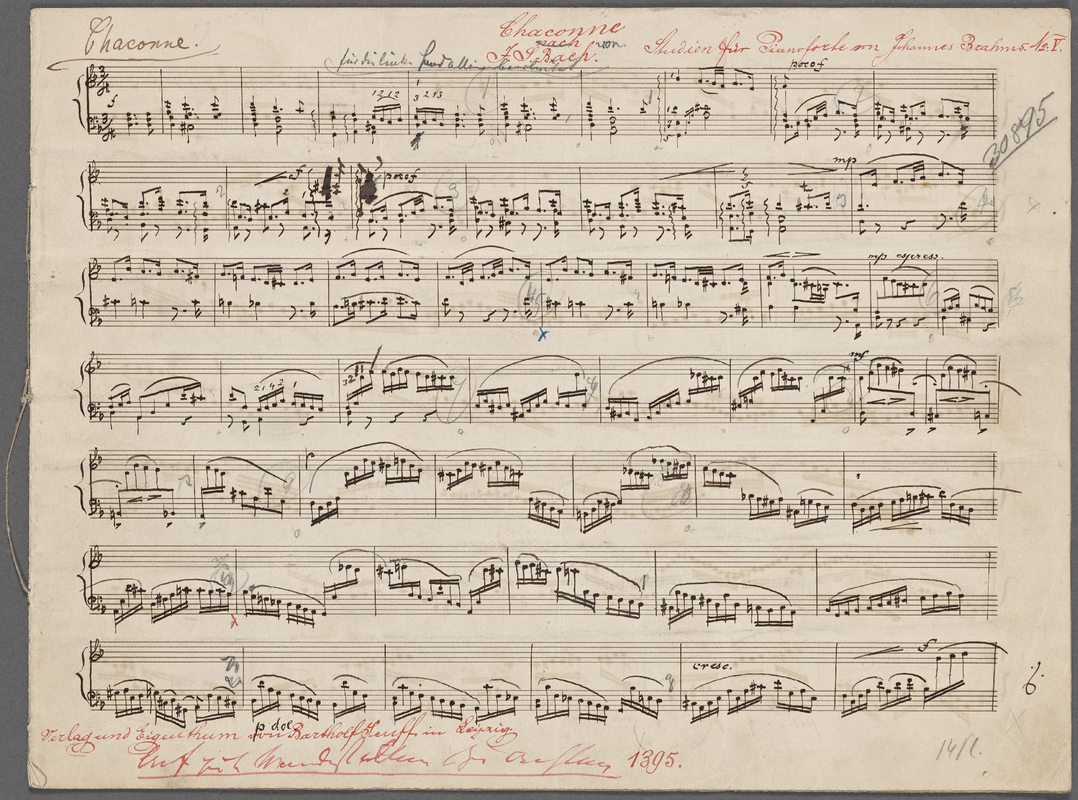 Chaconne.
Chaconne
nach von
J. S. Bach.
Studien für Pianoforte von Johannes Brahms. No. V.
für die linke Hand allein bearbeitet
poco f
f
1 2 1 2
1
3 2 1 3
30895
f
poco f
mp
mp espress.
2 1 4 2 1
3 2
mp
cresc.
f
p dol.
Verlag und Eigenthum von Barthold Senff in Leipzig.
1395.